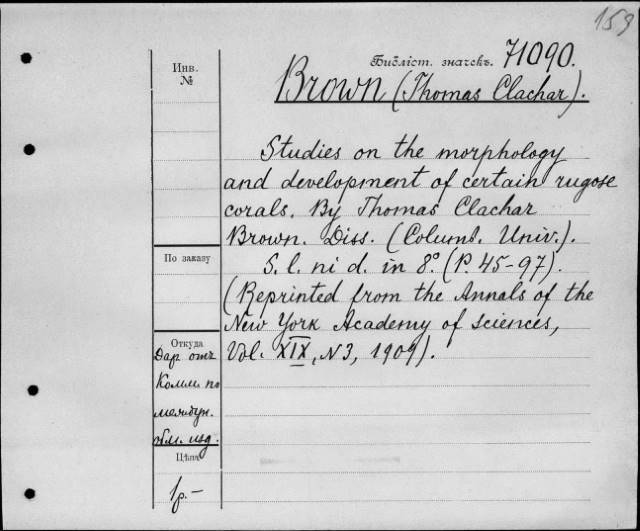 159
Библіот. значекъ. 71090.
Инв.
№
Brown (Thomas Clachar).
Studies on the morphology
and development of certain rugose
corals. By Thomas Clachar
Brown. Diss. (Columb. Univ.).
По заказу
S. l. ni d. in 8º. (P. 45-97).
(Reprinted from the Annals of the
New York Academy of sciences,
Vol. XIX, N 3, 1909).
Откуда
Дар отъ
Комм. по
междун.
обм. изд.
Цѣна
1р.-